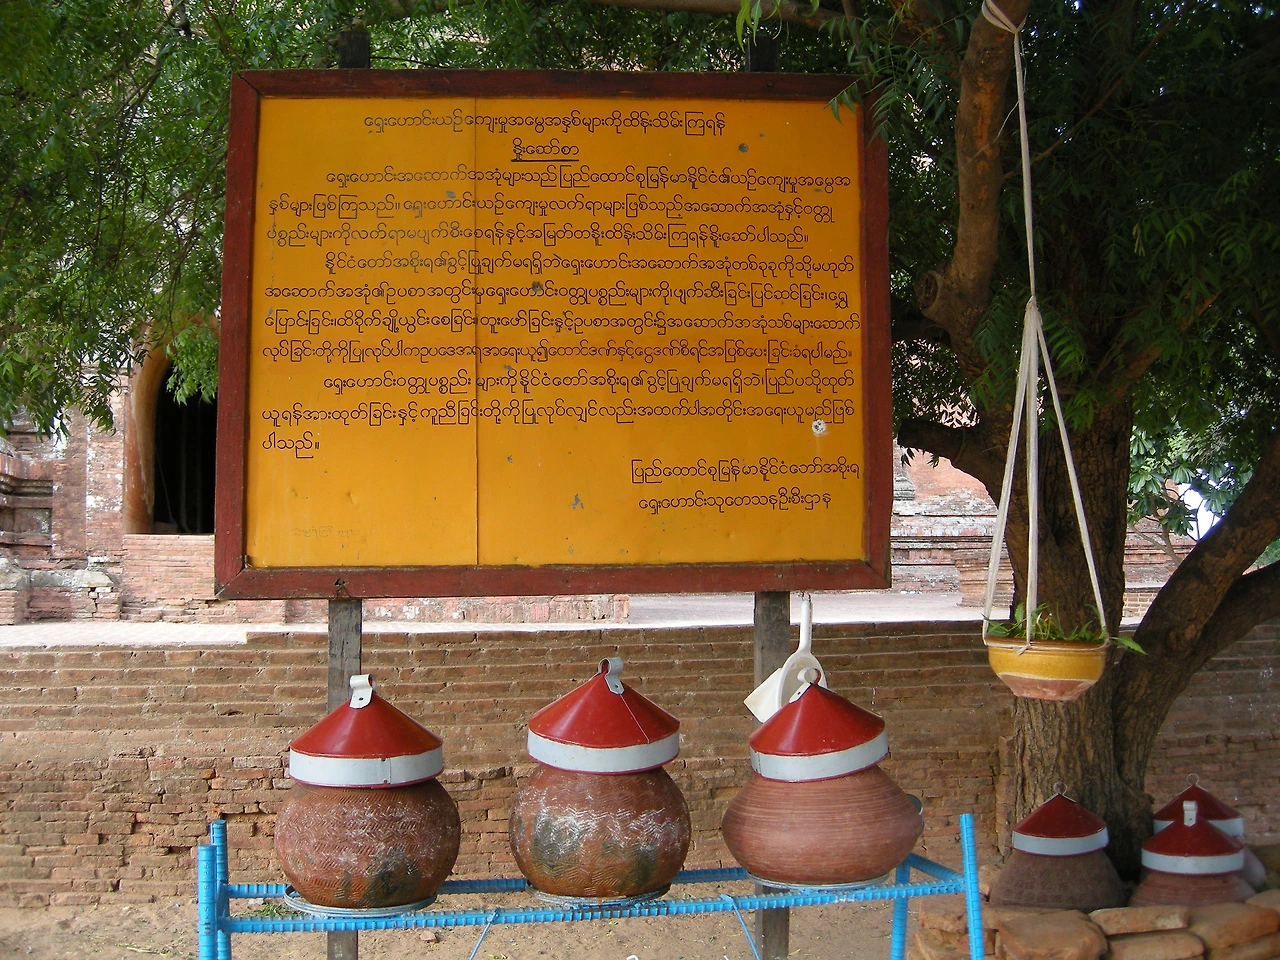 ရှေးဟောင်းယဉ်ကျေးမှုအမွေအနှစ်များကိုထိန်းသိမ်းကြရန်
နှိုးဆော်စာ
ရှေးဟောင်းအဆောက်အအုံများသည်ပြည်ထောင်စုမြန်မာနိုင်ငံ၏ယဉ်ကျေးမှုအမွေအ
နှစ်များဖြစ်ကြသည်။ရှေးဟောင်းယဉ်ကျေးမှုလက်ရာများဖြစ်သည့်အဆောက်အအုံနှင့်ဝတ္ထု
ပစ္စည်းများကိုလက်ရာမပျက်စီးစေရန်နှင့်အမြတ်တနိုးထိန်းသိမ်းကြရန်နိုးဆော်ပါသည်။
နိုင်ငံတော်အစိုးရ၏ခွင့်ပြုချက်မရရှိဘဲရှေးဟောင်းအဆောက်အအုံတစ်ခုခုကိုသို့မဟုတ်
အဆောက်အအုံ၏ဥပစာအတွင်းမှရှေးဟောင်းဝတ္ထုပစ္စည်းများကိုဖျက်ဆီးခြင်း၊ပြင်ဆင်ခြင်း၊ရွှေ့
ပြောင်းခြင်း၊ထိခိုက်ချို့ယွင်းစေခြင်း၊တူးဖော်ခြင်းနှင့်ဥပစာအတွင်း၌အဆောက်အအုံသစ်များဆောက်
လုပ်ခြင်းတို့ကိုပြုလုပ်ပါကဥပဒေအရအရေးယူ၍ထောင်ဒဏ်နှင့်ငွေဒဏ်စီရင်အပြစ်ပေးခြင်းခံရပါမည်။
ရှေးဟောင်းဝတ္ထုပစ္စည်းများကိုနိုင်ငံတော်အစိုးရ၏ခွင့်ပြုချက်မရရှိဘဲ၊ပြည်ပသို့ထုတ်
ယူရန်အားထုတ်ခြင်းနှင့်ကူညီခြင်းတို့ကိုပြုလုပ်လျှင်လည်းအထက်ပါအတိုင်းအရေးယူမည်ဖြစ်
ပါသည်။
ပြည်ထောင်စုမြန်မာနိုင်ငံတော်အစိုးရ
ရှေးဟောင်းသုတေသနဦးစီးဌာန